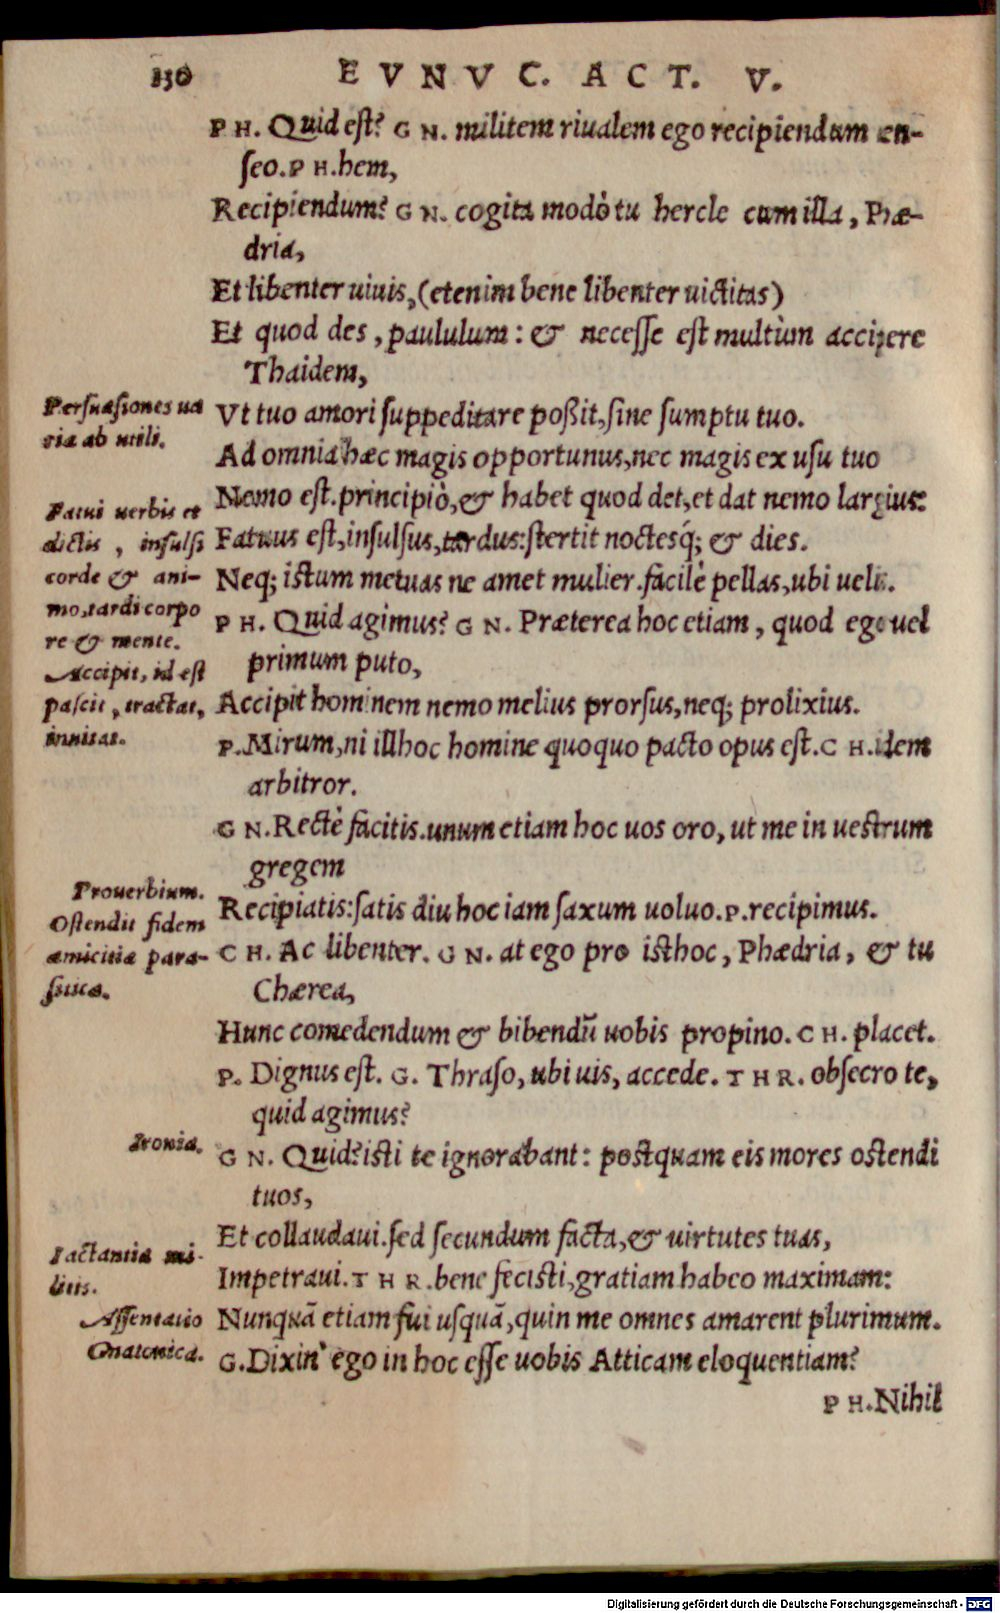 130 EVNVC. ACT. V.
PH. Quid est? GN. militem riualem ego recipiendum cen-
seo. PH. hem,
Recipiendum? GN. cogita modò tu hercle cum illa, Phæ-
dria,
Et libenter uiuis, (etenim bene libenter uictitas)
Et quod des, paululum: & necesse est multùm accipere
Thaidem,
Persuasiones ua
riæ ab utili.
Vt tuo amori suppeditare poßit, sine sumptu tuo.
Ad omnia hæc magis opportunus, nec magis ex usu tuo
Nemo est. principiò, & habet quod det, et dat nemo largius:
Fatui uerbis et
dictis, insulsi
corde & ani-
mo, tardi corpo
re & mente.
Fatuus est, insulsus, tardus: stertit noctesq́; & dies.
Neq; istum metuas ne amet mulier. facilè pellas, ubi uelis.
PH. Quid agimus? GN. Præterea hoc etiam, quod ego uel
primum puto,
Accipit, id est
pascit, tractat,
inuitat.
Accipit hominem nemo melius prorsus, neq; prolixius.
P. Mirum, ni illhoc homine quoquo pacto opus est. CH. idem
arbitror.
GN. Rectè facitis. unum etiam hoc uos oro, ut me in uestrum
gregem
Prouerbium.
Recipiatis: satis diu hoc iam saxum uoluo. P. recipimus.
Ostendit fidem
amicitiæ para-
siticæ.
CH. Ac libenter. GN. at ego pro isthoc, Phædria, & tu
Chærea,
Hunc comedendum & bibendū uobis propino. CH. placet.
P. Dignus est. G. Thraso, ubi uis, accede. THR. obsecro te,
quid agimus?
Ironia.
GN. Quid? isti te ignorabant: postquam eis mores ostendi
tuos,
Et collaudaui. sed secundum facta, & uirtutes tuas,
Iactantia mi-
litis.
Impetraui. THR. bene fecisti, gratiam habeo maximam:
Assentatio
Gnatonica.
Nunquā etiam fui usquā, quin me omnes amarent plurimum.
G. Dixin' ego in hoc esse uobis Atticam eloquentiam?
PH. Nihil
Digitalisierung gefördert durch die Deutsche Forschungsgemeinschaft - DFG